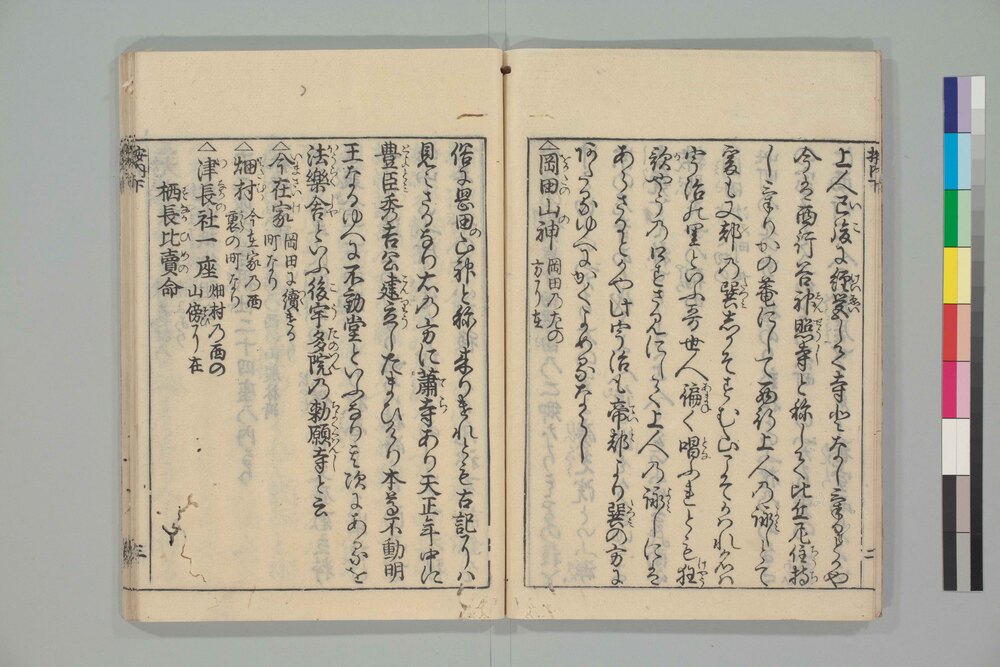 上人已後に経営して寺となし来りしとかや
今は西行谷神照寺と称して比丘尼住持
して来りかの菴にして西行上人の詠しとて
爰も又都の巽しかそすむ山こそかはれ名は
宇治の里といふ哥世人偏く唱ふれとも狂
歌やうの口すさみにして上人の詠しには
あらさるとかや此宇治も帝都より巽の方に
あたるゆへにかくよめるなるへし
△岡田山神 岡田の左の
方に在
俗に思田山神と称し来りけれとも古記には
見へさるなり右の方に蕭寺あり天正年中に
豊臣秀吉公建立したまひけり本尊不動明
王なるゆへに不動堂といふなり其次にあるを
法樂舎といふ後宇多院の勅願寺と云
△今在家 岡田に續ける
町なり
△畑村 今在家の西
裏の町なり
△津長社一座 畑村の西の
山傍に在
栖長比賣命